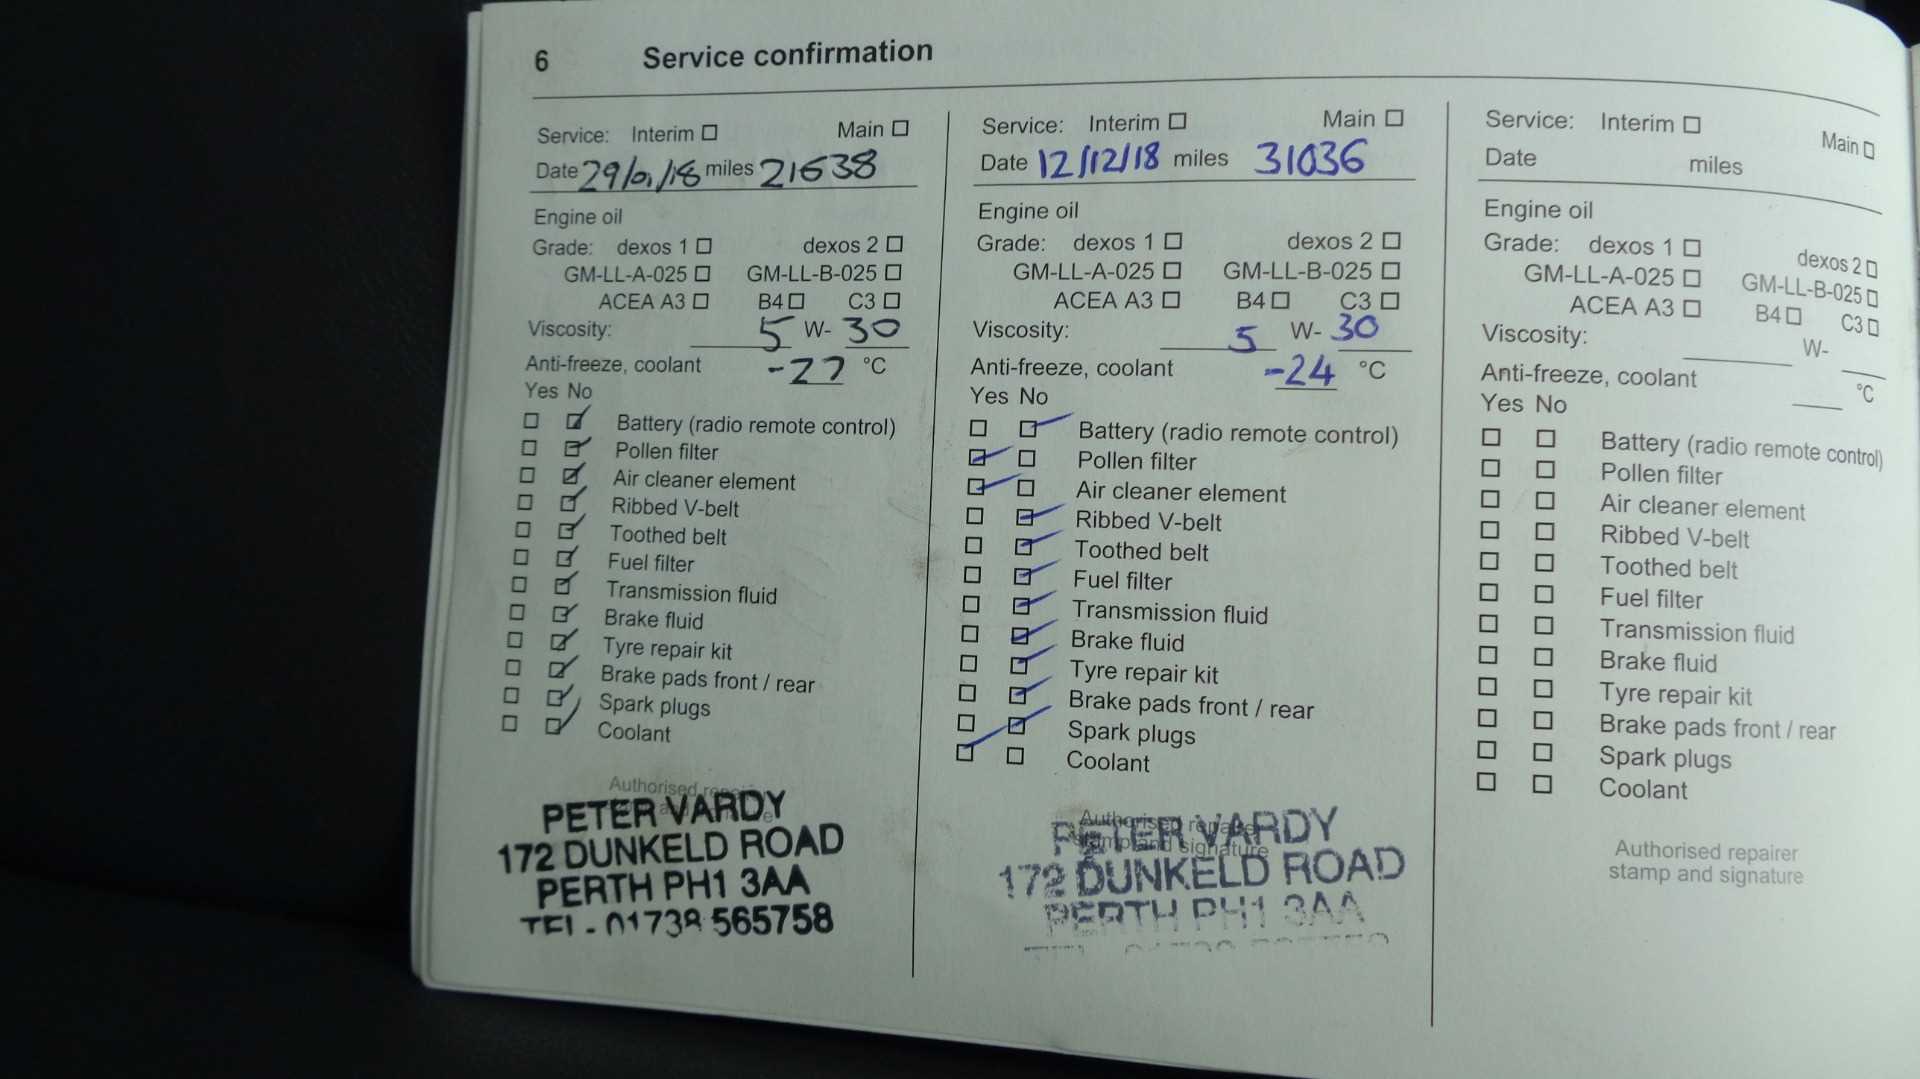 6 Service confirmation
Service: Interim Main
Date 29/01/18 miles 21638
Engine oil
Grade: dexos 1 dexos 2
GM-LL-A-025 GM-LL-B-025
ACEA A3 B4 C3
Viscosity: 5 W- 30
Anti-freeze, coolant -27 °C
Yes No
Battery (radio remote control)
Pollen filter
Air cleaner element
Ribbed V-belt
Toothed belt
Fuel filter
Transmission fluid
Brake fluid
Tyre repair kit
Brake pads front / rear
Spark plugs
Coolant
Authorised
PETER VARDY
172 DUNKELD ROAD
PERTH PH1 3AA
TEL - 01738 565758
Service: Interim Main
Date 12/12/18 miles 31036
Engine oil
Grade: dexos 1 dexos 2
GM-LL-A-025 GM-LL-B-025
ACEA A3 B4 C3
Viscosity: 5 W- 30
Anti-freeze, coolant -24 °C
Yes No
Battery (radio remote control)
Pollen filter
Air cleaner element
Ribbed V-belt
Toothed belt
Fuel filter
Transmission fluid
Brake fluid
Tyre repair kit
Brake pads front / rear
Spark plugs
Coolant
Authorised repairer
stamp and signature
PETER VARDY
172 DUNKELD ROAD
PERTH PH1 3AA
Service: Interim Main
Date miles
Engine oil
Grade: dexos 1 dexos 2
GM-LL-A-025 GM-LL-B-025
ACEA A3 B4 C3
Viscosity: W-
Anti-freeze, coolant °C
Yes No
Battery (radio remote control)
Pollen filter
Air cleaner element
Ribbed V-belt
Toothed belt
Fuel filter
Transmission fluid
Brake fluid
Tyre repair kit
Brake pads front / rear
Spark plugs
Coolant
Authorised repairer
stamp and signature